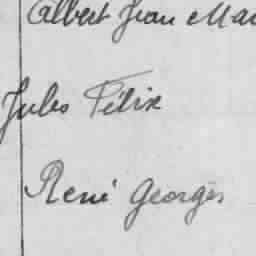 Albert Jean Mar
Jules Félix
René Georges